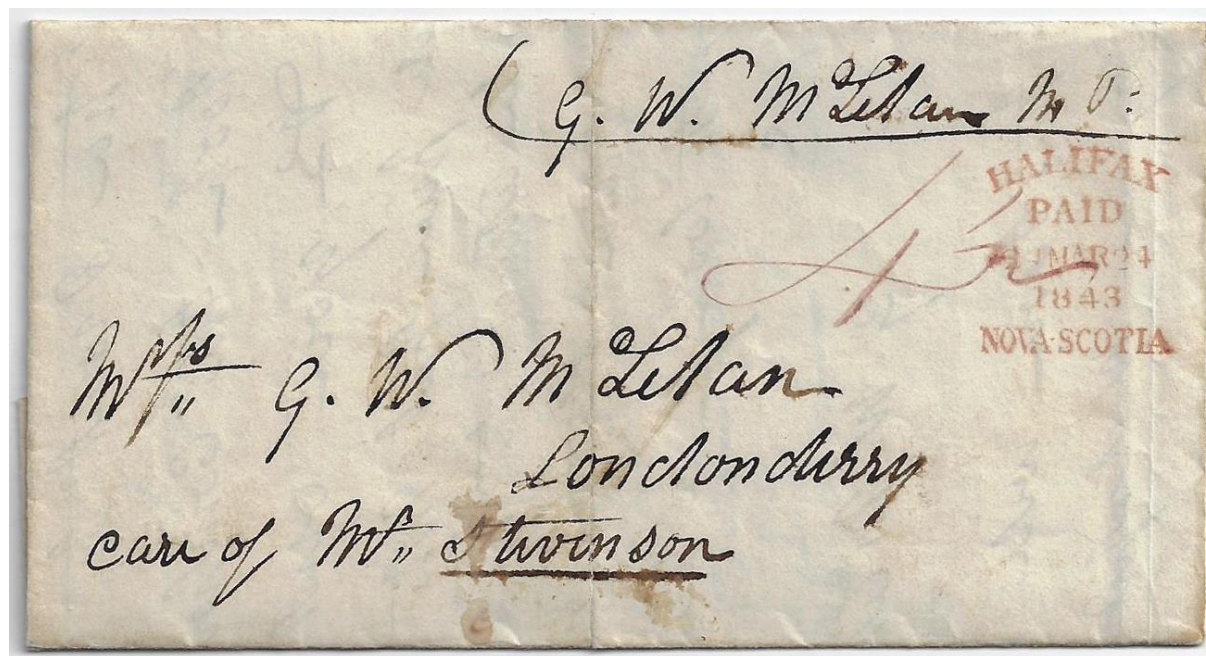 (G. W. McLelan M P:
HALIFAX
PAID
MAR 24
1843
NOVA-SCOTIA
4½
G. W. McLelan
Londonderry
care of Mr Stevenson